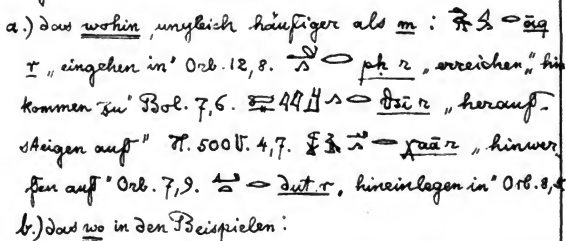 a.) das wohin, ungleich häufiger als m : āq
r „eingehen in“ Orb. 12,8. pḥ r „erreichen,“ hin
kommen zu“ Bol. 7,6. r „herauf-
steigen auf“ H. 500 V. 4,7. r „hinwer
fen auf“ Orb. 7,9. dut r „hineinlegen in“ Orb. 8,
b.) das wo in den Beispielen: